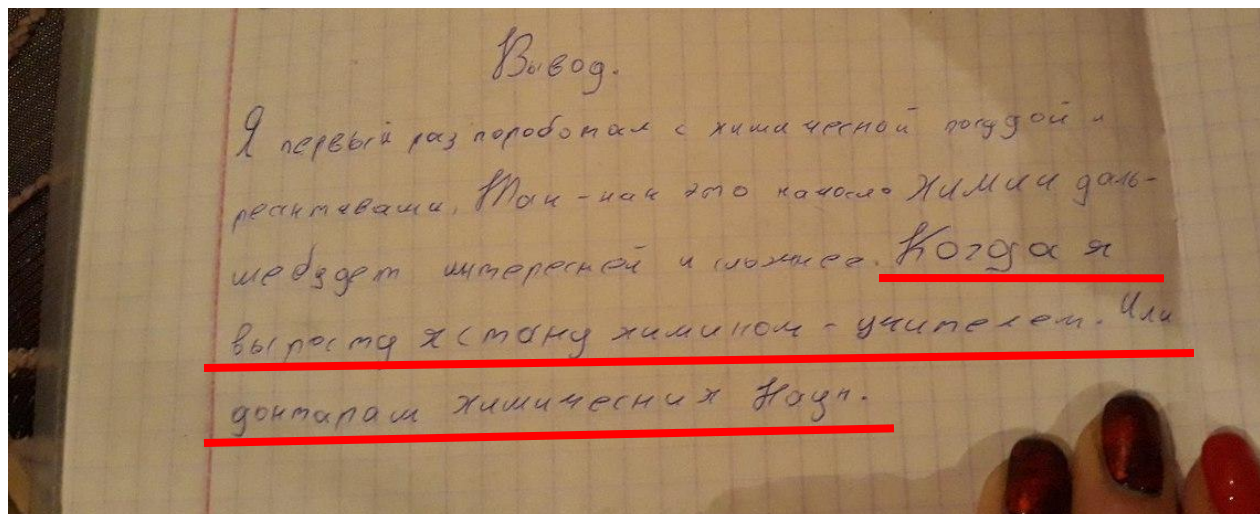 Вывод.
Я первый раз пороботал с химической посудой и
реактивами. Так-как это начало ХИМИИ даль-
шебудет интересней и сложнее. Когда я
выросту я стану химиком - учителем. Или
доктарам химических Наук.